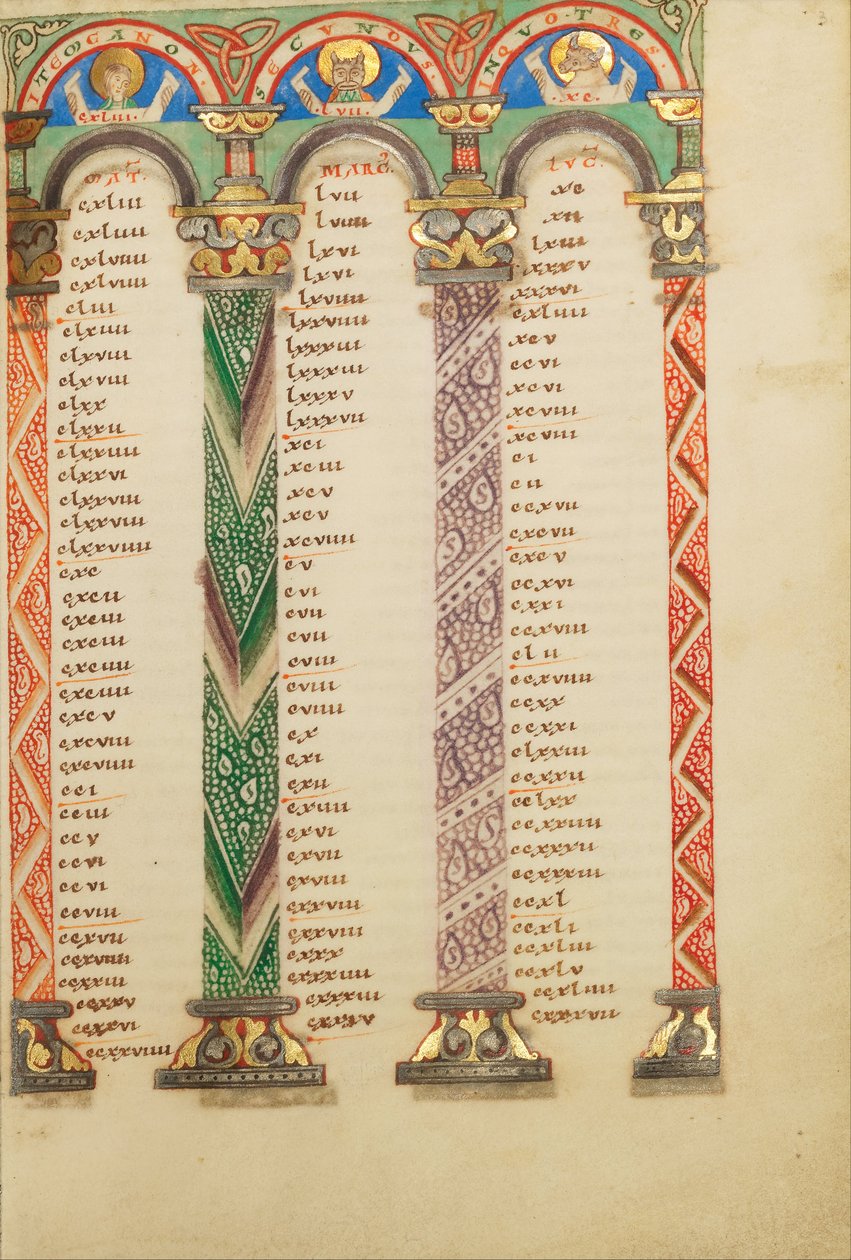 3
ITEM CANON SECVNDVS INQVO TRES
cxliii.
lvii.
.xc.
MAT.
cxliii
cxliiii
cxlviiii
cxlviiii
cliii
clxiiii
clxviii
clxviii
clxx
clxxii
clxxiiii
clxxvi
clxxviii
clxxviii
clxxviiii
cxc
cxcii
cxciii
cxciii
cxciiii
cxciiii
cxcv
cxcviii
cxcviiii
cci
cciii
ccv
ccvi
ccvi
ccviii
ccxvii
ccxviiii
ccxxiii
ccxxv
ccxxvi
ccxxviiii
MARC.
lvii
lviiii
lxvi
lxvi
lxviiii
lxxviiii
lxxxiii
lxxxiii
lxxxv
lxxxvii
xci
xciii
xcv
xcv
xcviiii
cv
cvi
cvii
cvii
cviii
cviii
cviiii
cx
cxi
cxii
cxiiii
cxvi
cxvii
cxviii
cxxviii
cxxviii
cxxx
cxxxiiii
cxxxiii
cxxxv
LVC.
xc
xii
lxiii
xxxv
xxxvi
cxliiii
xcv
ccvi
xcvi
xcviii
xcviii
ci
cii
ccxvii
cxcvii
cxcv
ccxvi
cxxi
ccxviii
clii
ccxviiii
ccxx
ccxxi
clxxiii
ccxxii
cclxx
ccxxiiii
ccxxxii
ccxxxiii
ccxl
ccxli
ccxliii
ccxlv
ccxliiii
ccxxxvii